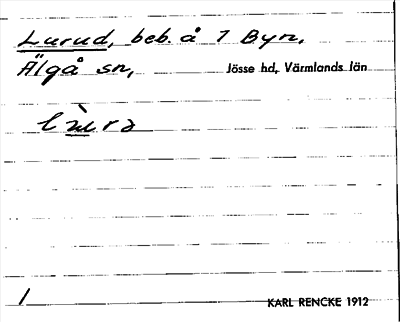 Lurud, beb. å 7 Byn,
Älgå sn, Jösse hd, Värmlands län
1 KARL RENCKE 1912